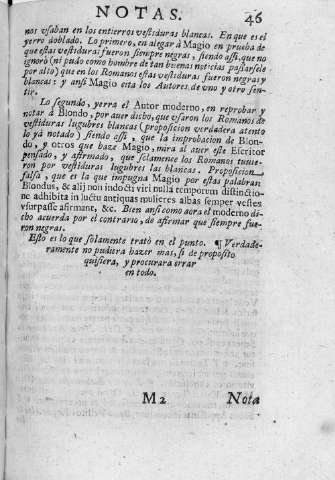 NOTAS. 46
nos vsaban en los entierros vestiduras blancas. En que es el
yerro doblado. Lo primero, en alegar à Magio en prueba de
que estas vestiduras fueron siempre negras, siendo assi, que no
ignorò (ni pudo como hombre de tan buenas noticias passarsele
por alto) que en los Romanos estas vestiduras fueron negras y
blancas: y ansi Magio cita los Autores de vno y otro sen-
tir.
Lo segundo, yerra el Autor moderno, en reprobar y
notar à Blondo, por auer dicho, que vsaron los Romanos de
vestiduras lugubres blancas (proposicion verdadera atento
lo yà notado) siendo assi, que la improbacion de Blon-
do, y otros que haze Magio, mira al auer este Escritor
pensado, y afirmado, que solamente los Romanos tuuie-
ron por vestiduras lugubres las blancas. Proposicion
falsa, que es la que impugna Magio por estas palabras
Blondus, & alij non indocti viri nulla temporum distinctio-
ne adhibita in luctu antiquas mulieres albas semper vestes
vsurpasse afirmant, &c. Bien ansi como aora el moderno di-
cho acuerda por el contrario, de afirmar que siempre fue-
ron negras.
Esto es lo que solamente tratò en el punto. ¶ Verdade-
ramente no pudiera hazer mas, si de proposito
quisiera, y procurara errar
en todo.
M2 Nota